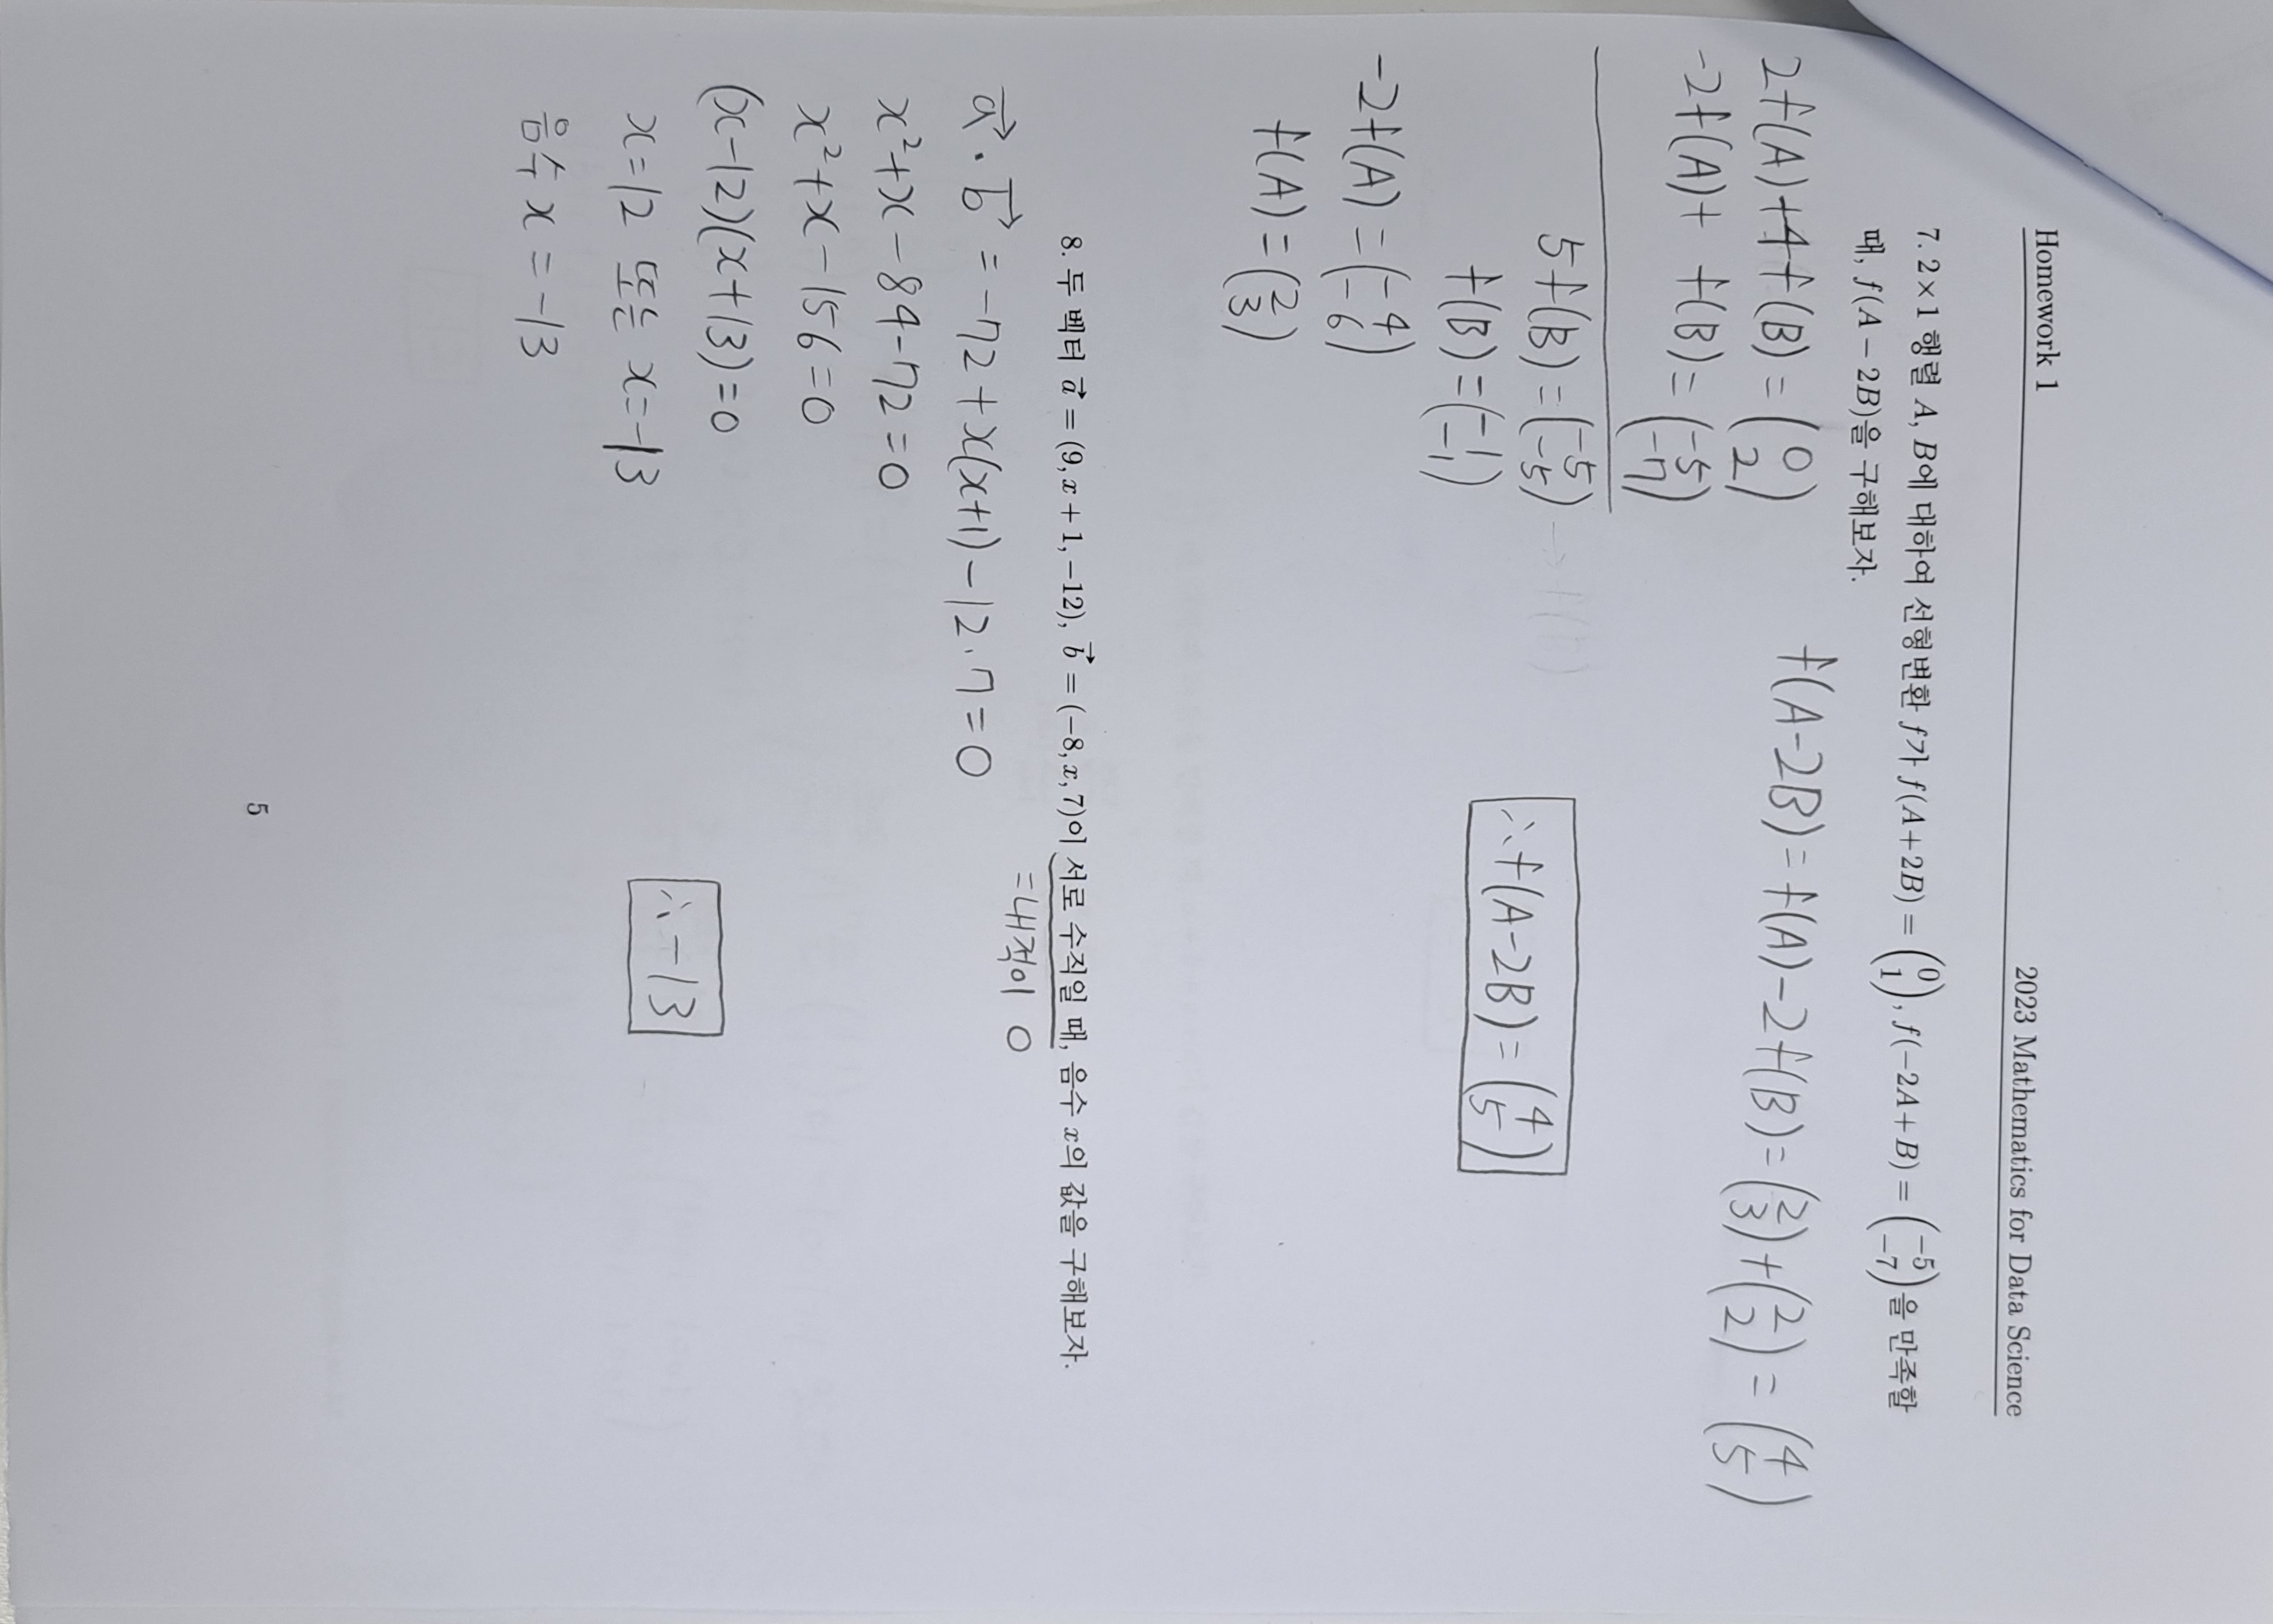 Homework 1
2023 Mathematics for Data Science
7. 2×1 행렬 A, B에 대하여 선형변환 f가 f(A+2B) = (0 1), f(−2A+B) = (−5 −7)을 만족할
때, f(A − 2B)을 구해보자.
2f(A)+4f(B) = (0 2)
-2f(A)+ f(B) = (-5 -7)
5f(B) = (-5 -5)
f(B) = (-1 -1)
-2f(A) = (-4 -6)
f(A) = (2 3)
f(A-2B) = f(A)-2f(B) = (2 3)+(2 2) = (4 5)
∴f(A-2B) = (4 5)
8. 두 벡터 a⃗ = (9, x + 1, −12), b⃗ = (−8, x, 7)이 서로 수직일 때, 음수 x의 값을 구해보자.
=내적이 0
a⃗ · b⃗ = -72 + x(x+1) - 12·7 = 0
x²+x-84-72=0
x²+x-156=0
(x-12)(x+13)=0
x=12 또는 x=-13
음수 x = -13
∴ -13
5